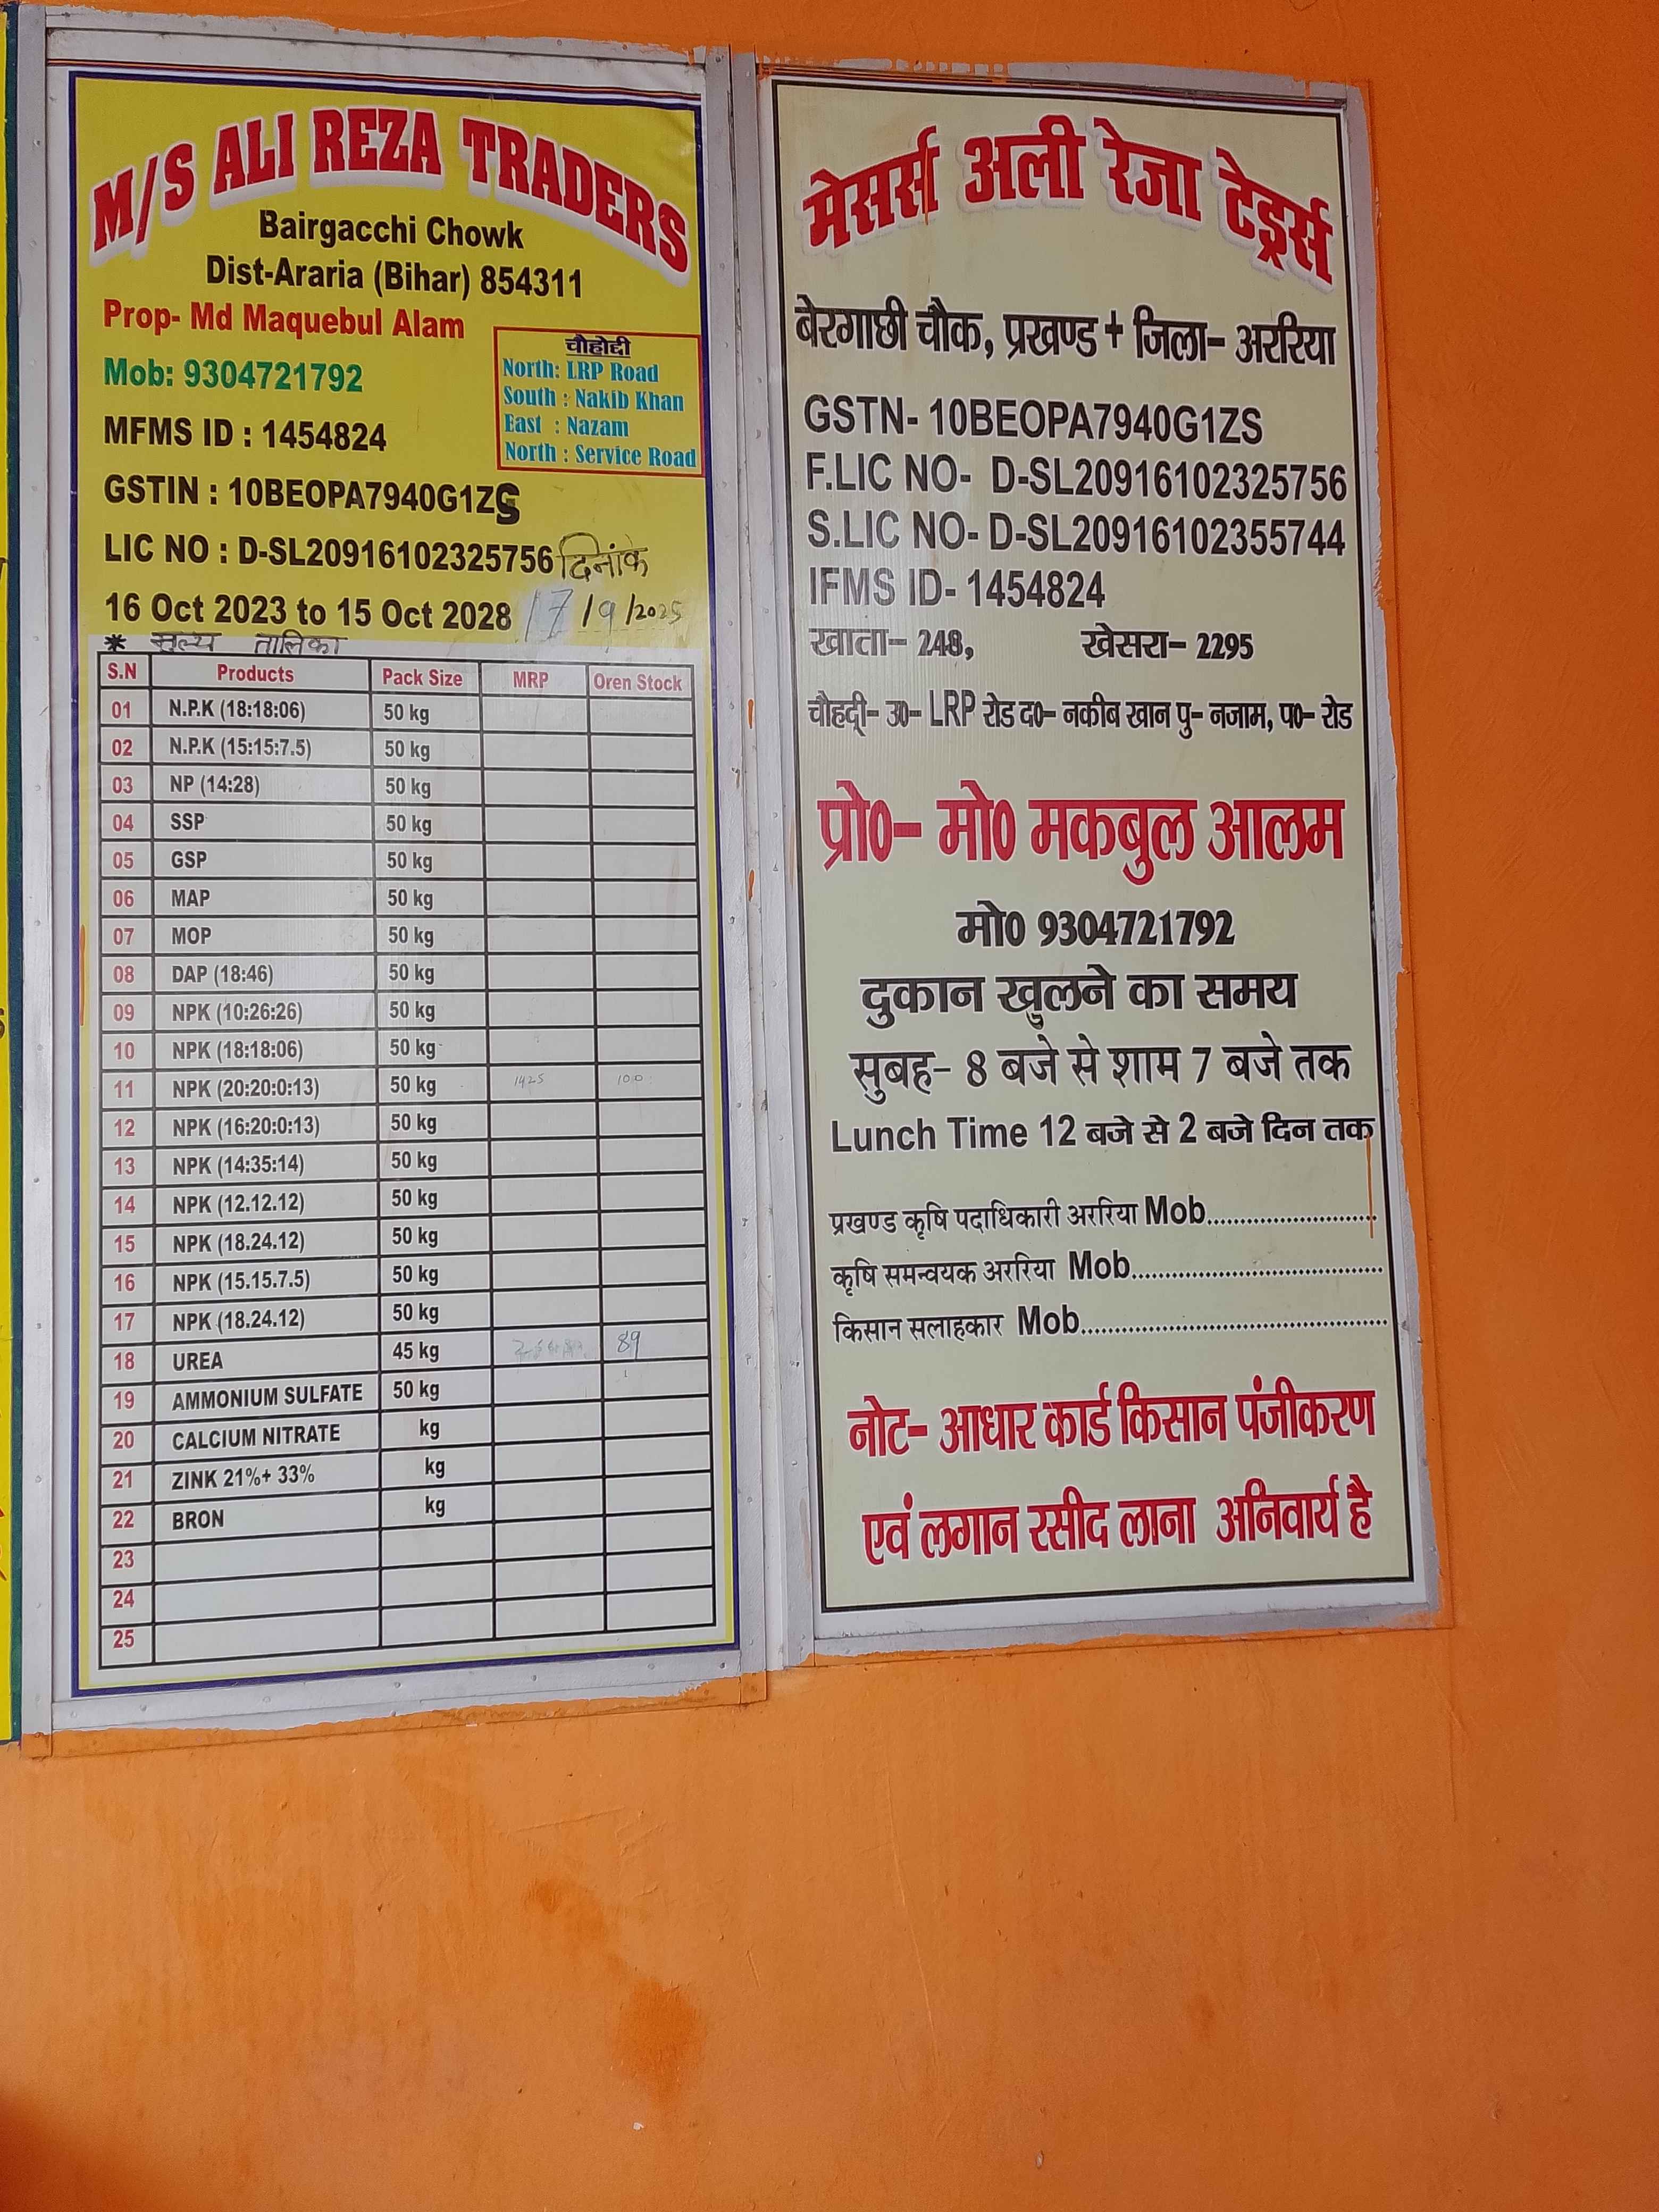 M/S ALI REZA TRADERS
Bairgacchi Chowk
Dist-Araria (Bihar) 854311
Prop- Md Maquebul Alam
Mob: 9304721792
चौहोद्दी
North: LRP Road
South : Nakib Khan
East : Nazam
North : Service Road
MFMS ID : 1454824
GSTIN : 10BEOPA7940G1ZS
LIC NO : D-SL20916102325756 दिनांक
16 Oct 2023 to 15 Oct 2028 17/9/2025
* मुल्य तालिका
S.N Products Pack Size MRP Oren Stock
01 N.P.K (18:18:06) 50 kg
02 N.P.K (15:15:7.5) 50 kg
03 NP (14:28) 50 kg
04 SSP 50 kg
05 GSP 50 kg
06 MAP 50 kg
07 MOP 50 kg
08 DAP (18:46) 50 kg
09 NPK (10:26:26) 50 kg
10 NPK (18:18:06) 50 kg
11 NPK (20:20:0:13) 50 kg 1425 100
12 NPK (16:20:0:13) 50 kg
13 NPK (14:35:14) 50 kg
14 NPK (12.12.12) 50 kg
15 NPK (18.24.12) 50 kg
16 NPK (15.15.7.5) 50 kg
17 NPK (18.24.12) 50 kg
18 UREA 45 kg 89
19 AMMONIUM SULFATE 50 kg
20 CALCIUM NITRATE kg
21 ZINK 21%+ 33% kg
22 BRON kg
23
24
25
मेसर्स अली रेजा टेड्रर्स
बेरगाछी चौक, प्रखण्ड + जिला- अररिया
GSTN- 10BEOPA7940G1ZS
F.LIC NO- D-SL20916102325756
S.LIC NO- D-SL20916102355744
IFMS ID- 1454824
खाता- 248, खेसरा- 2295
चौहद्दी- उ0- LRP रोड द0- नकीब खान पु- नजाम, प0- रोड
प्रो0- मो0 मकबुल आलम
मो0 9304721792
दुकान खुलने का समय
सुबह- 8 बजे से शाम 7 बजे तक
Lunch Time 12 बजे से 2 बजे दिन तक
प्रखण्ड कृषि पदाधिकारी अररिया Mob..............................
कृषि समन्वयक अररिया Mob............................................
किसान सलाहकार Mob......................................................
नोट- आधार कार्ड किसान पंजीकरण
एवं लगान रसीद लाना अनिवार्य है